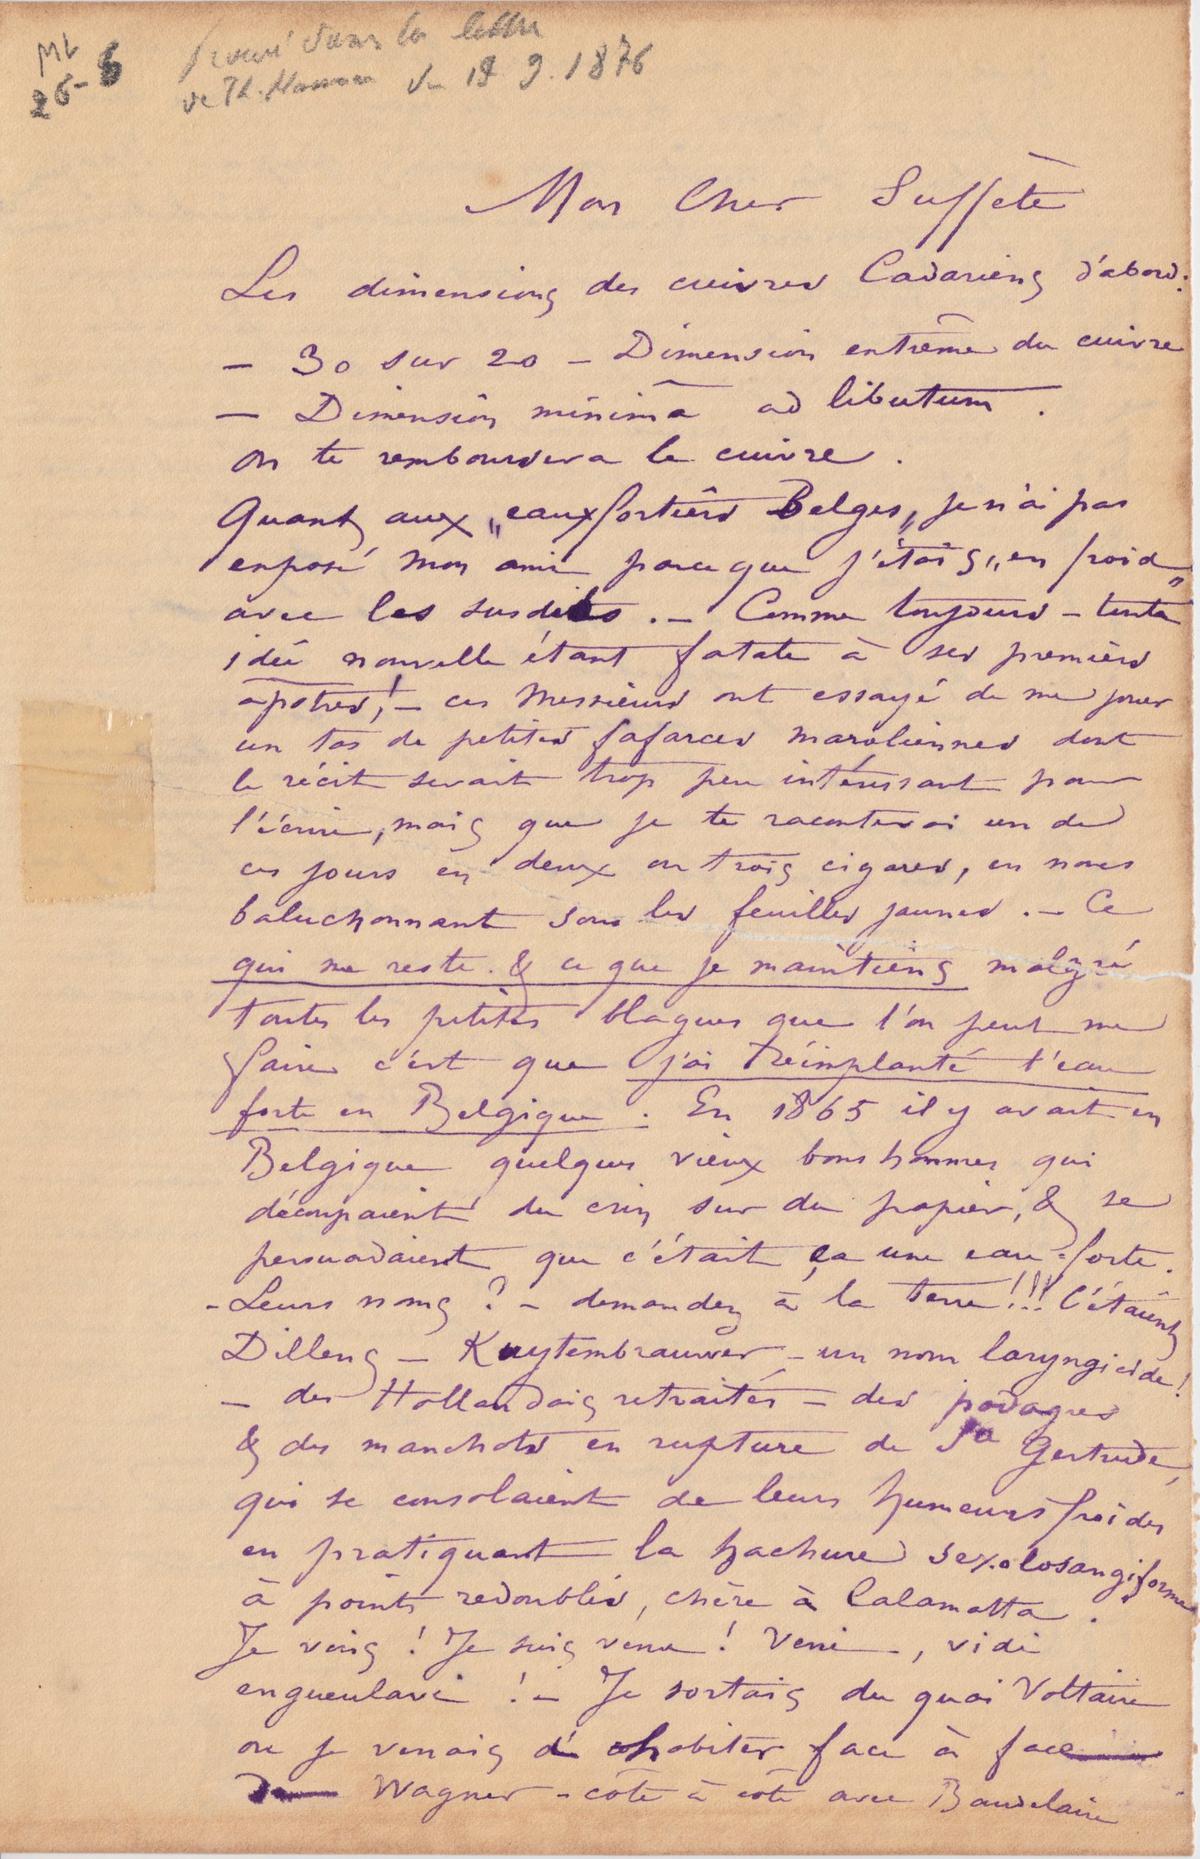 ML
26-6
trouvé dans la lettre
de Th. Hannon du 18 9. 1876
Mon Cher Suffète
Les dimensions des cuivres Cadariens d'abord:
— 30 sur 20 — Dimension extrême du cuivre
— Dimension minima ad libutum.
on te remboursera le cuivre.
Quant aux „eauxfortiers Belges„ je n'ai pas
exposé mon ami parce que j'étais „en froid„
avec les susdits. — Comme toujours — toute
idée nouvelle étant fatale à ses premiers
apôtres! — ces Messieurs ont essayé de me jouer
un tas de petites fafarces maroliennes dont
le récit serait trop peu intéressant pour
l'écrire, mais que je te raconterai un de
ces jours en deux ou trois cigares, en nous
baluchonnant sous les feuilles jaunes. — Ce
qui me reste & ce que je maintiens malgré
toutes les petites blagues que l'on peut me
faire c'est que j'ai réimplanté l'eau
forte en Belgique. En 1865 il y avait en
Belgique quelques vieux bons hommes qui
découpaient du crin sur du papier, & se
persuadaient que c'était ça une eau-forte.
- Leurs noms? — demandez à la terre!!! C'étaient
Dillens — Kuytembrauwer — un nom laryngicide!
— des Hollandais retraités — des podagres
& des manchots en rupture de Ste Gertrude,
qui se consolaient de leurs humeurs froides
en pratiquant la hachure sexolosangiforme
à points redoublés, chère à Calamatta.
Je vins! Je suis venu! Veni, vidi
engueulavi! — Je sortais du quai Voltaire
ou je venais d'habiter face à face
Wagner - côte à côte avec Baudelaire